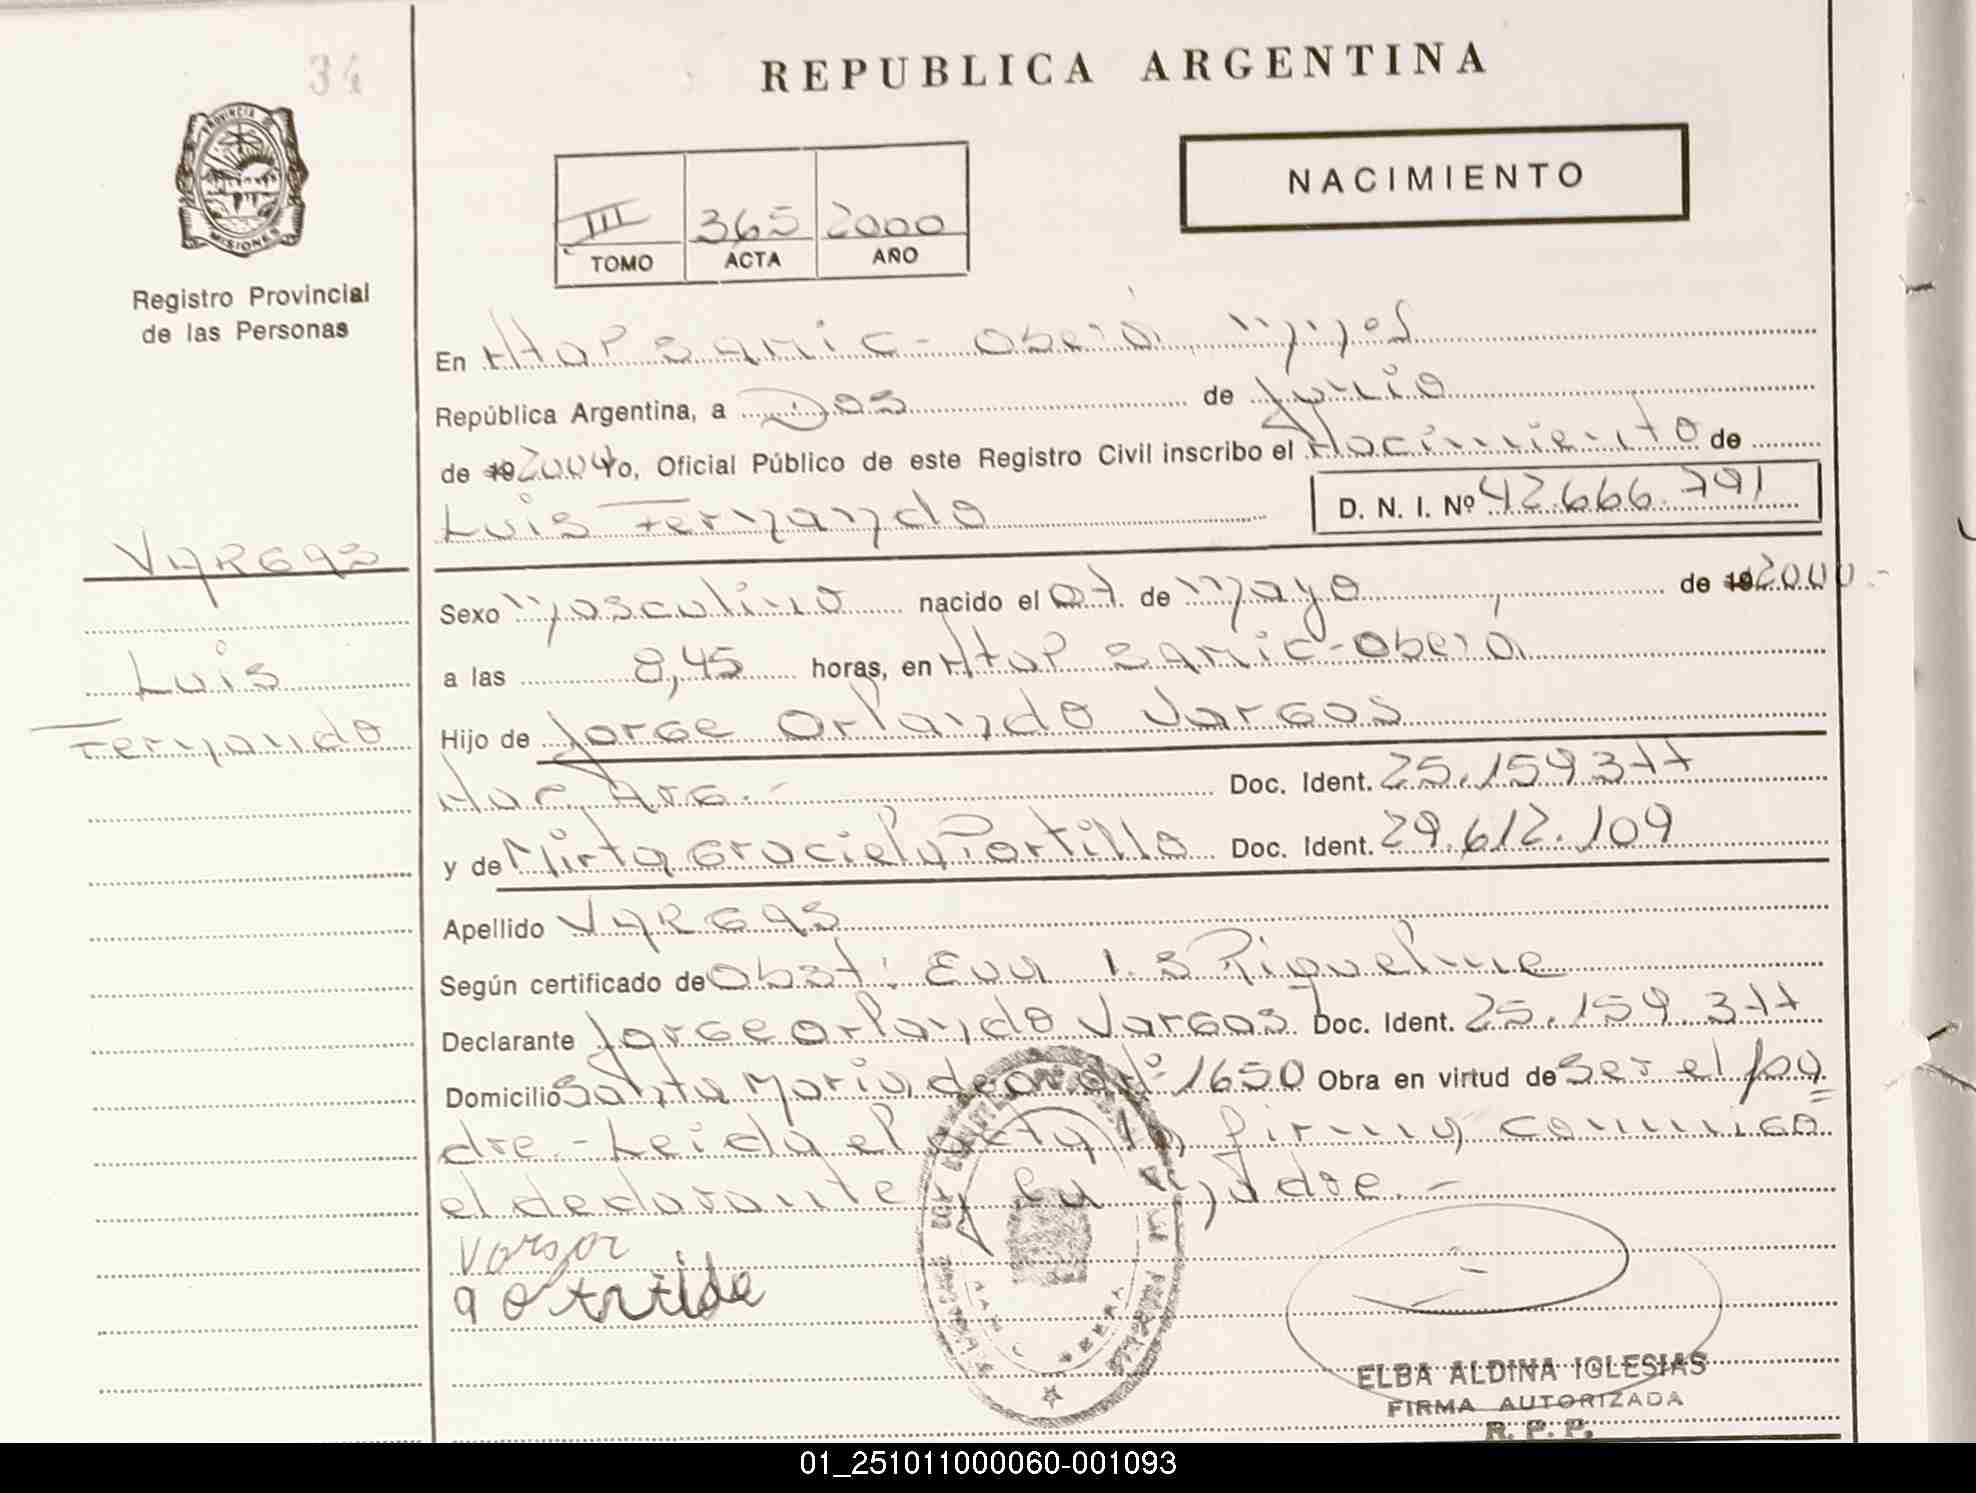 34
REPUBLICA ARGENTINA
PROVINCIA DE
MISIONES
Registro Provincial
de las Personas
NACIMIENTO
III 365 2000
TOMO ACTA AÑO
En Htal Samic - Oberá, Mnes
República Argentina, a Dos de Junio
de 192000 Yo, Oficial Público de este Registro Civil inscribo el Nacimiento de
Luis Fernando D. N. I. Nº 42.666.791
VARGAS
Luis
Fernando
Sexo Masculino nacido el 07 de Mayo de 192000.-
a las 8,45 horas, en Htal Samic - Oberá
Hijo de Jorge Orlando Vargas
Nac. Arg. - Doc. Ident. 25.159.377
y de Mirta Graciela Portillo Doc. Ident. 29.612.109
Apellido VARGAS
Según certificado de Obst: Eva I. S Riquelme
Declarante Jorge Orlando Vargas Doc. Ident. 25.159.377
Domicilio Santa María de Nº 1650 Obra en virtud de Ser el pa
dre. - Leida el Acta la firman conmigo
el declarante y la Madre. -
ELBA ALDINA IGLESIAS
FIRMA AUTORIZADA
R. P. P.
01_251011000060-001093